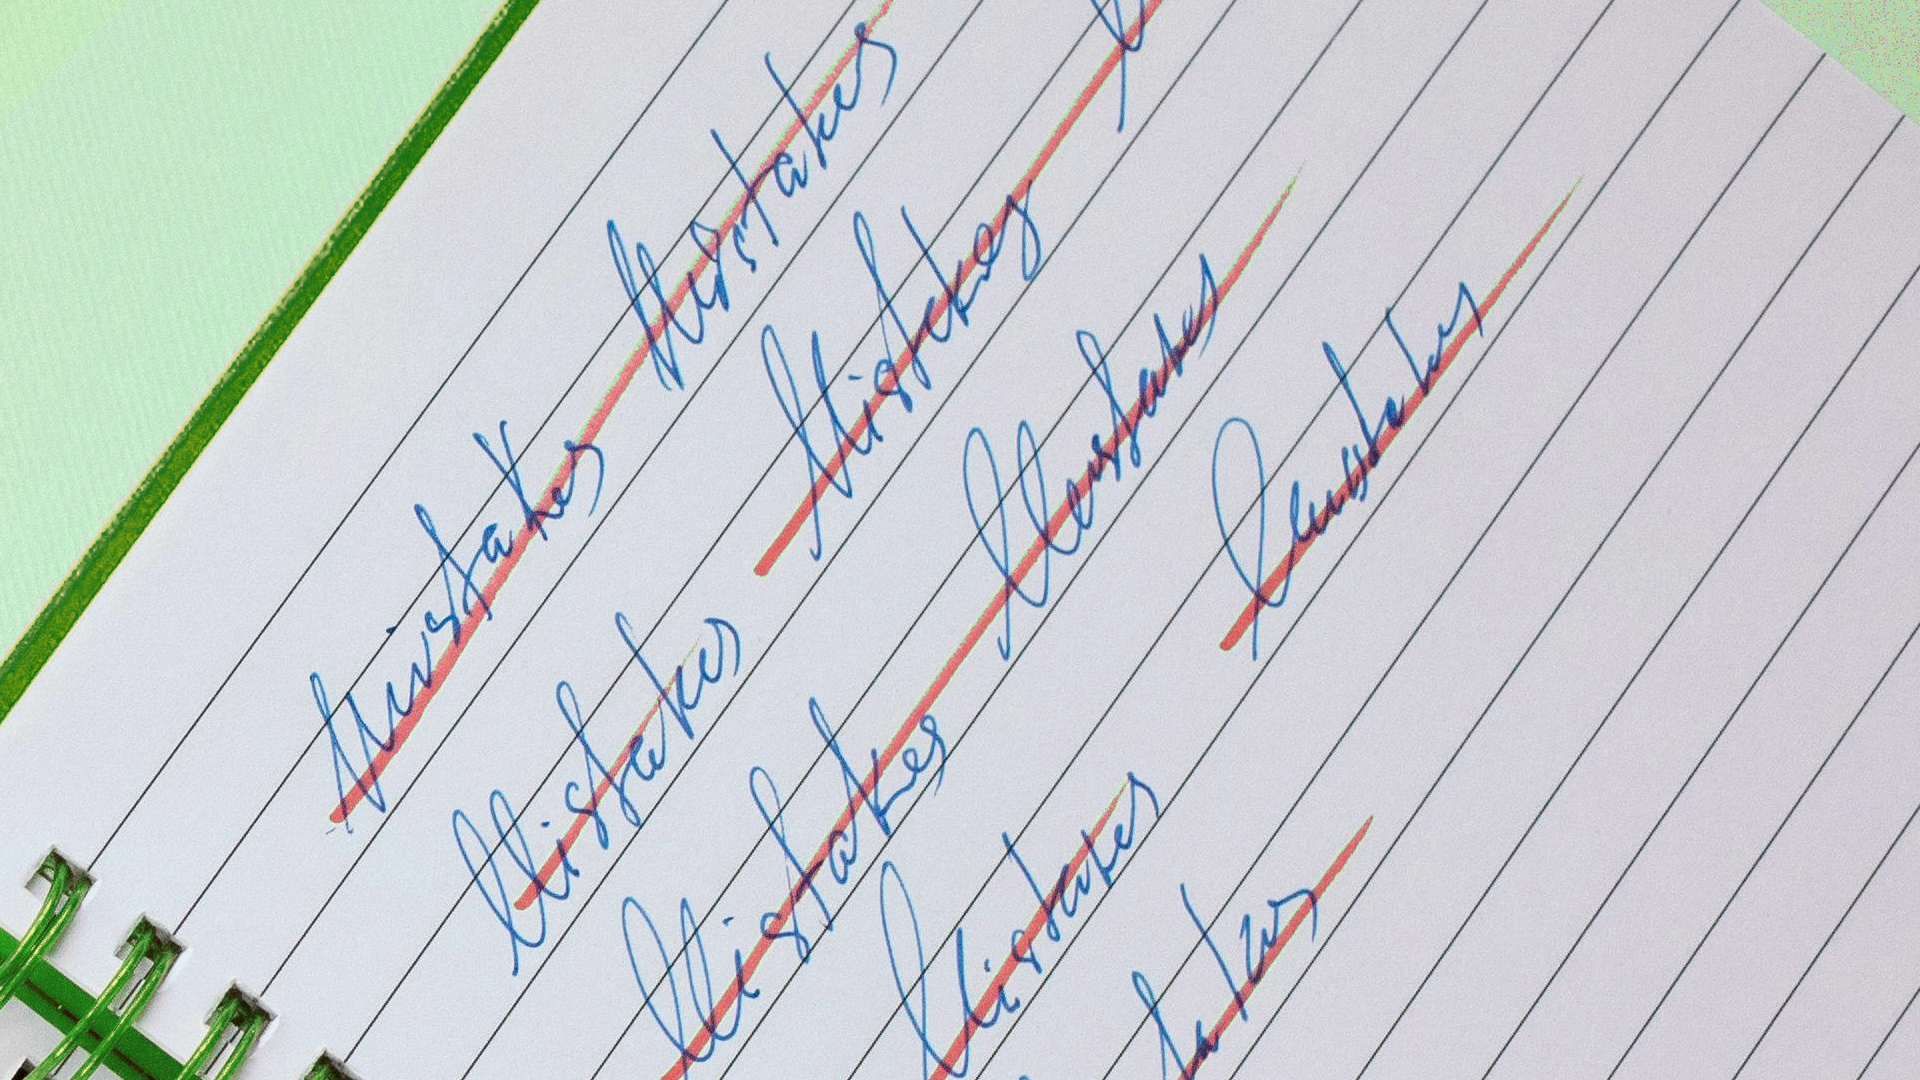 Mistakes Mistakes
Mistakes Mistakes
Mistakes Mistakes
Mistakes Mistakes